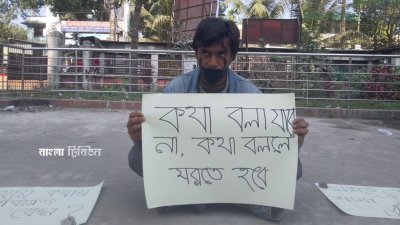 বাংলা ট্রিবিউন
কথা বলা যাবে
না, কথা বললে
মরতে হবে